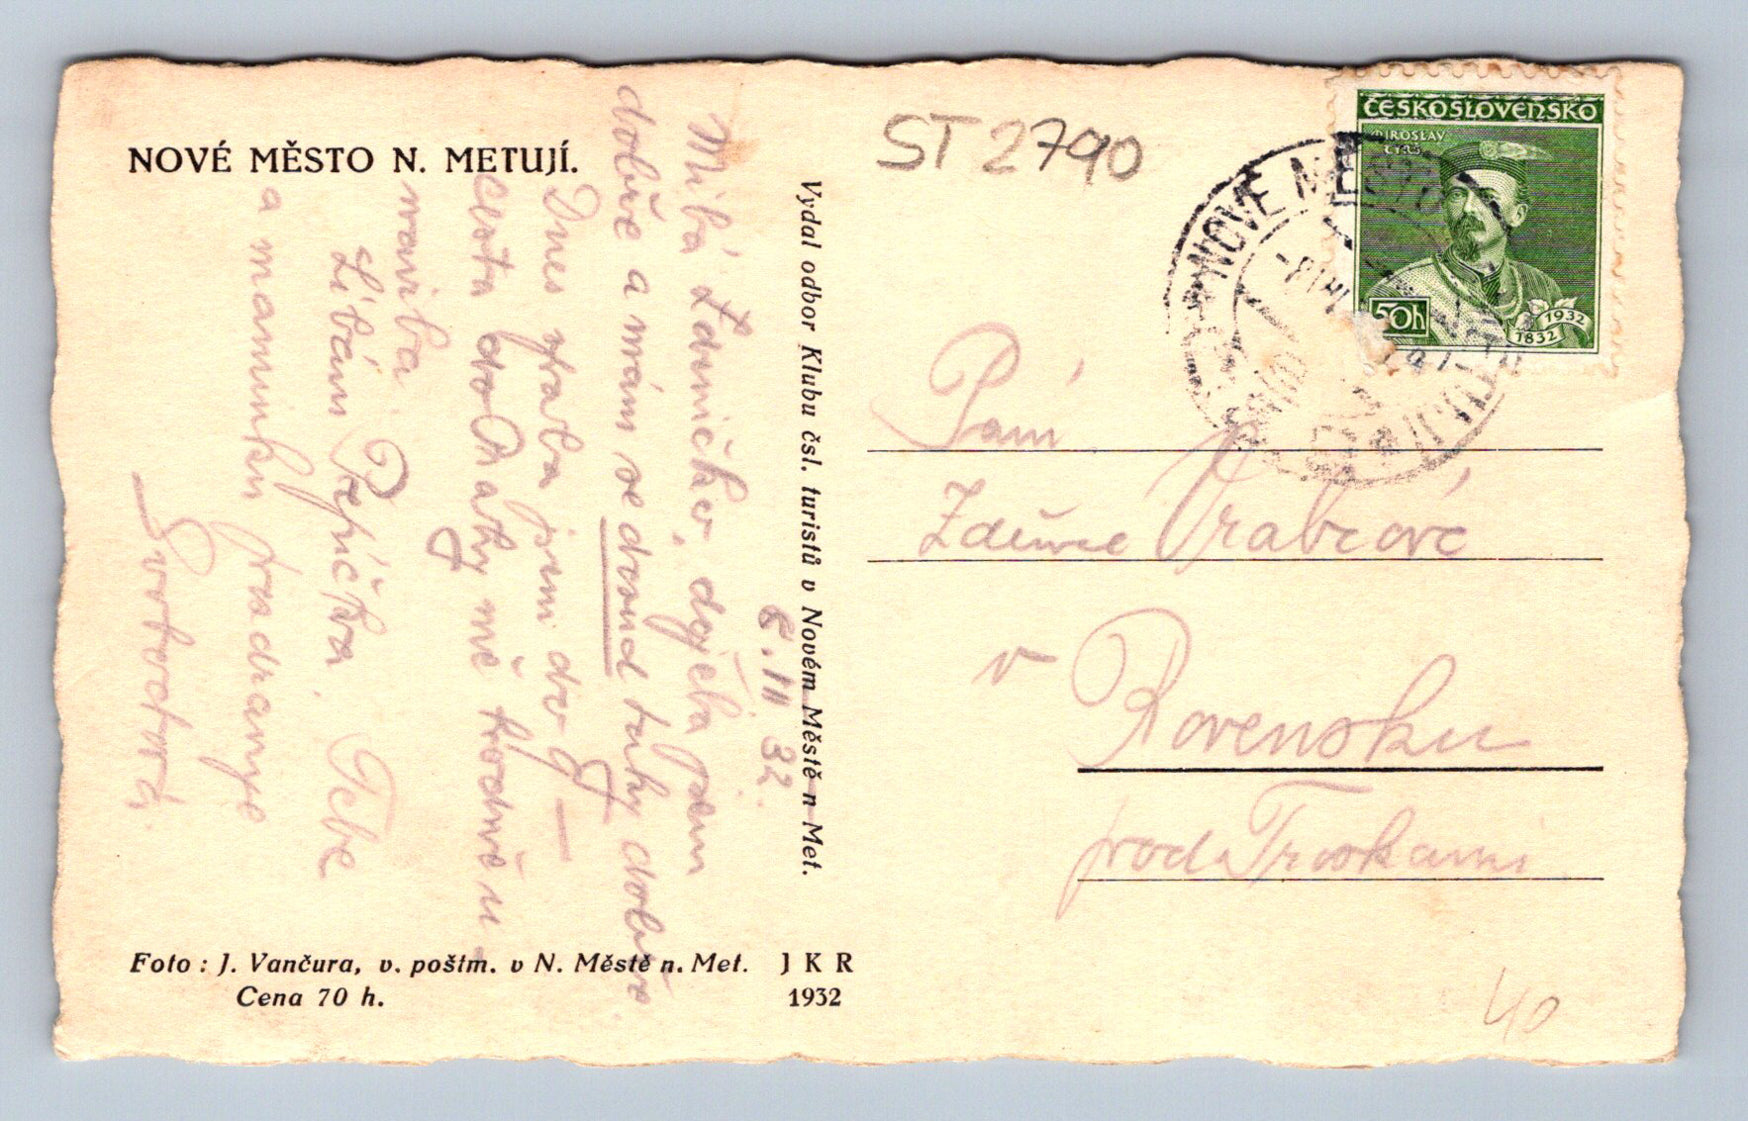 NOVÉ MĚSTO N. METUJÍ.
8.III 32.
Milá Zdeničko, dojela jsem
dobře a mám se dosud taky dobře.
Dnes
cesta do Prahy mě hodně u-
navila.
Líbám Pepíčka. Tebe
a maminku pozdravuje
Foto : J. Vančura, v. poštm. v N. Městě n. Met.
Cena 70 h.
J K R
1932
Vydal odbor Klubu čsl. turistů v Novém Městě n Met.
ST 2790
ČESKOSLOVENSKO
MIROSLAV
TYRŠ
50h
1832
1932
NOVÉ MĚSTO
METUJÍ
Paní
Zdeňce Vrabcové
v Rovensku
pod Troskami
40